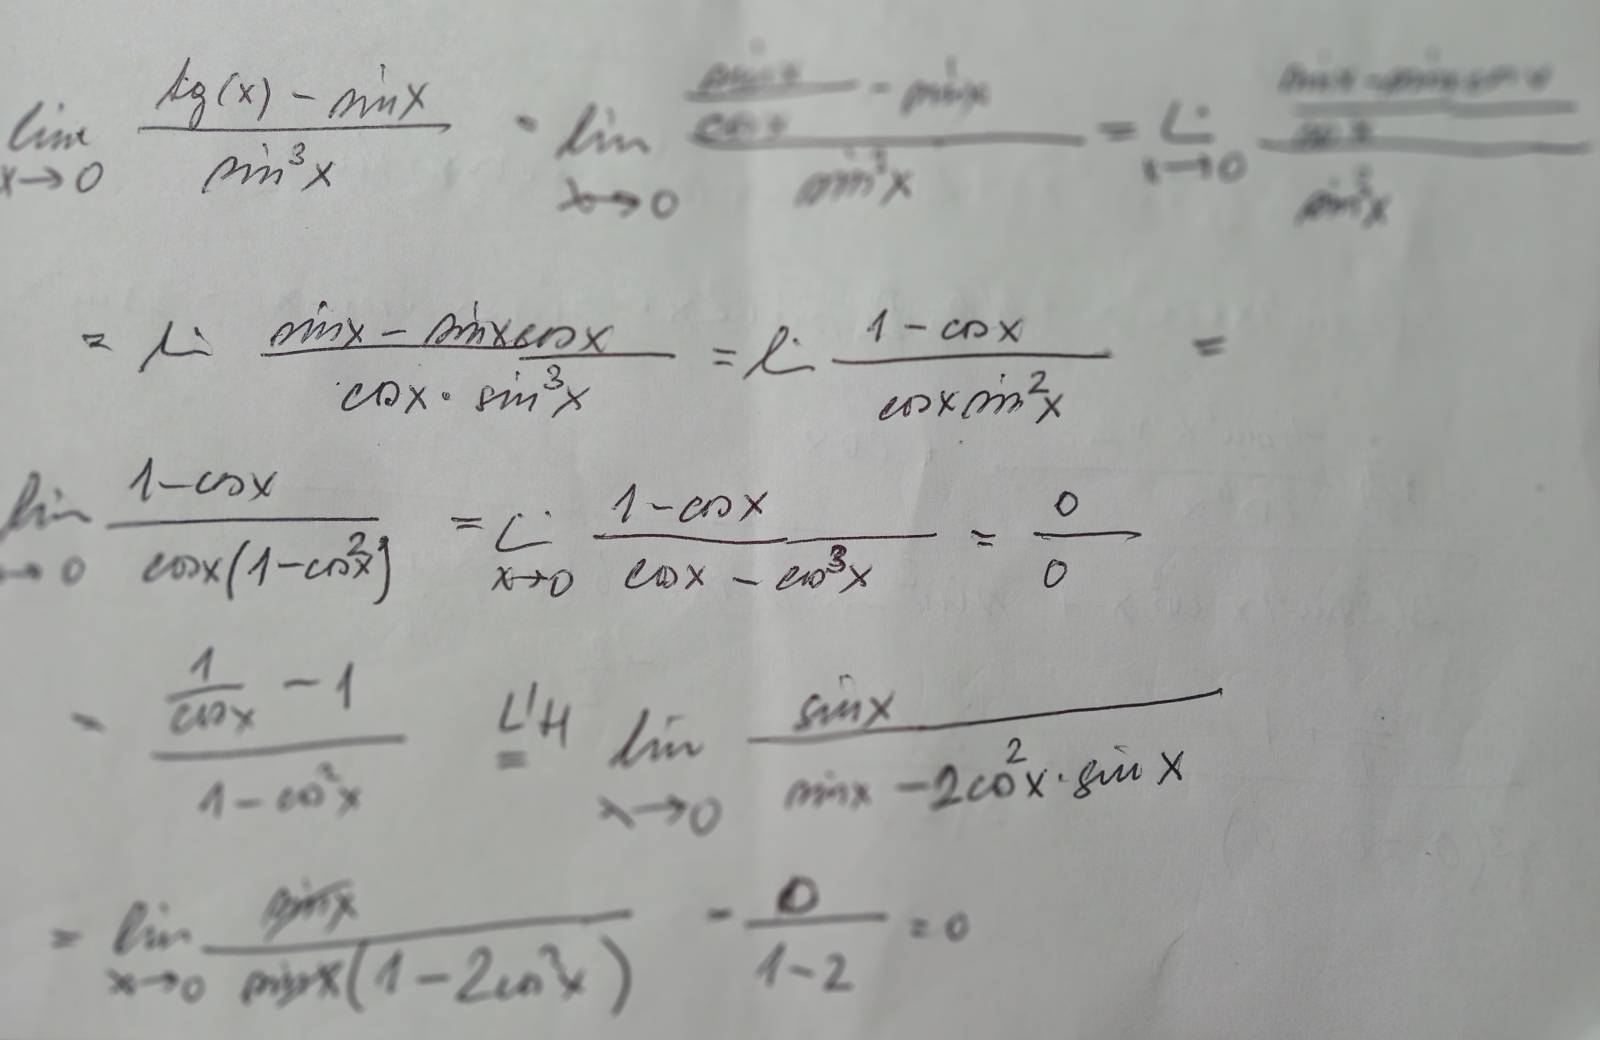 lim x→0 (tg(x) - sinx)/(sin³x) = lim x→0 (sinx/cosx - sinx)/(sin³x) = Li x→0 ((sinx - sinxcosx)/cosx)/(sin³x)
= Li (sinx - sinxcosx)/(cosx · sin³x) = li (1 - cosx)/(cosx sin²x) =
lim x→0 (1-cosx)/(cosx(1-cos²x)) = Li x→0 (1-cosx)/(cosx - cos³x) = 0/0
= (1/cosx - 1)/(1-cos²x) L'H = lim x→0 sinx/(sinx - 2cos²x · sinx)
= lim x→0 sinx/(sinx(1-2cos²x)) = 0/(1-2) = 0